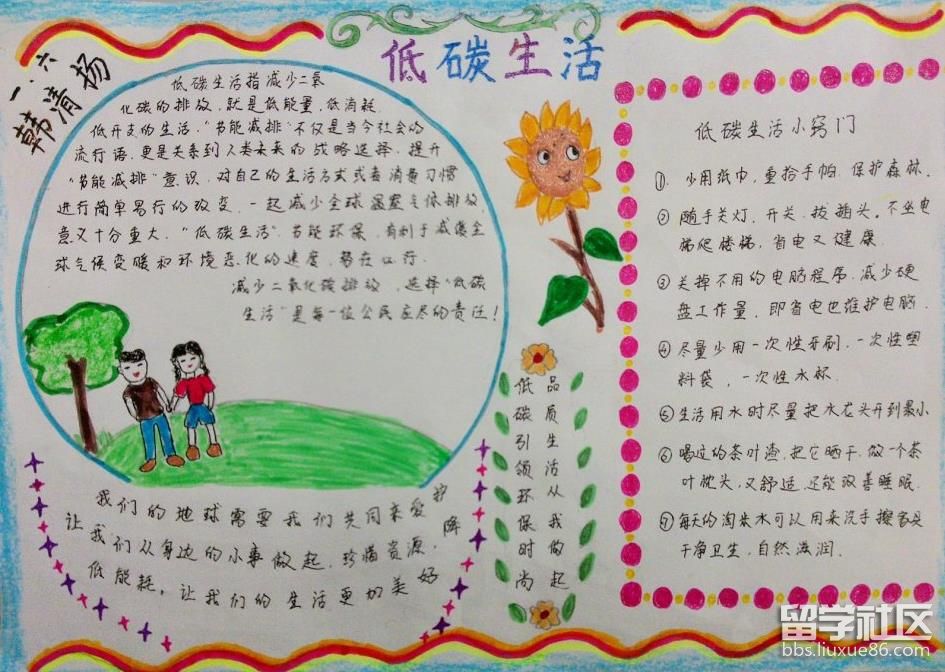 低碳生活
一.六
韩清扬
低碳生活指减少二氧
化碳的排放，就是低能量，低消耗，
低开支的生活，"节能减排"不仅是当今社会的
流行语，更是关系到人类未来的战略选择，提升
"节能减排"意识，对自己的生活方式或者消费习惯
进行简单易行的改变，一起减少全球温室气体排放，
意义十分重大，"低碳生活"节能环保，有利于减缓全
球气候变暖和环境恶化的速度，势在必行.
减少二氧化碳排放，选择"低碳
生活"是每一位公民应尽的责任！
我们的地球需要我们共同来爱护
让我们从身边的小事做起，珍惜资源，降
低能耗，让我们的生活更加美好
低碳引领环保时尚
品质生活从我做起
低碳生活小窍门
①．少用纸巾，重拾手帕，保护森林，
②随手关灯、开关、拔插头，不坐电
梯爬楼梯，省电又健康
③关掉不用的电脑程序，减少硬
盘工作量，即省电也维护电脑.
④尽量少用一次性牙刷，一次性塑
料袋，一次性水杯.
⑤生活用水时尽量把水龙头开到最小
⑥喝过的茶叶渣，把它晒干，做一个茶
叶枕头，又舒适，还能改善睡眠.
⑦每天的淘米水可以用来洗手擦家具
干净卫生，自然滋润.
留学社区
bbs.liuxue86.com